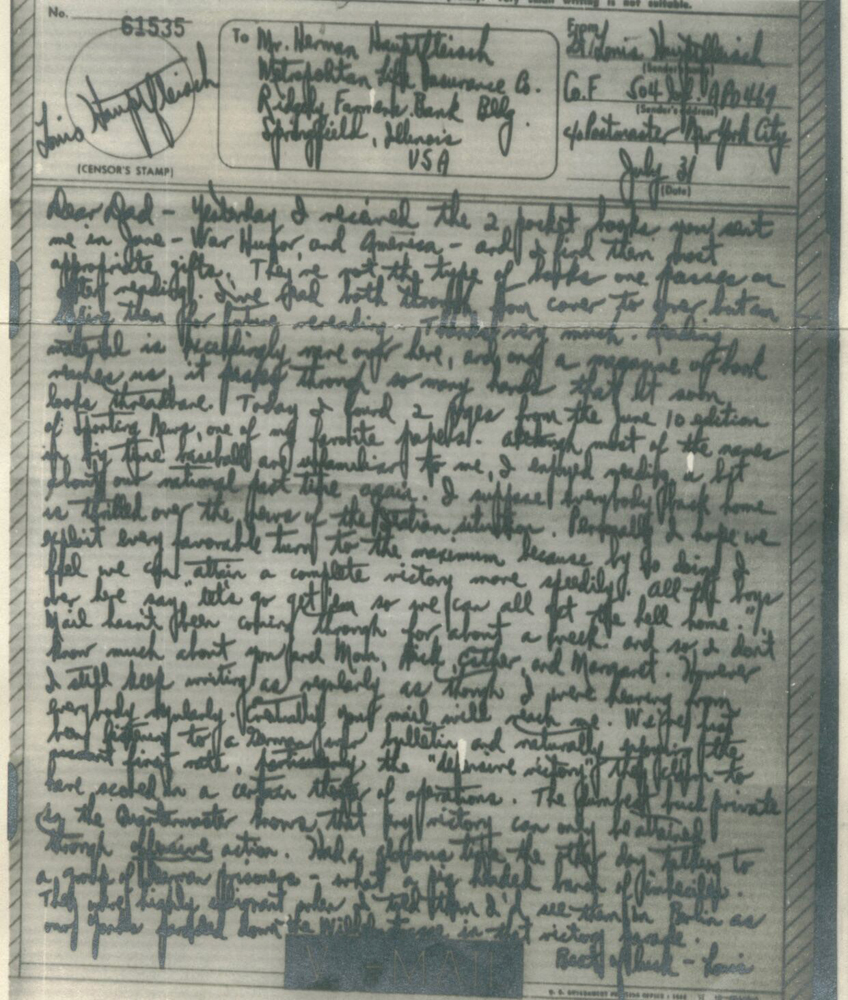 very small writing is not suitable.
No. 61535
Louis Hauptfleisch
(CENSOR'S STAMP)
To Mr. Herman Hauptfleisch
Metropolitan Life Insurance Co.
Ridgely Farmers Bank Bldg.
Springfield, Illinois
USA
From
Lt. Louis Hauptfleisch
(Sender's name)
Co. F 504 APO 469
(Sender's address)
c/o Postmaster New York City
July 31
(Date)
Dear Dad - Yesterday I received the 2 pocket books you sent
me in June - War Humor, and America - and I find them most
appropriate gifts. They're not the type of books one passes on
after reading. I've read both through from cover to cover but am
them for future rereading. Thanks very much. Reading
material is exceedingly rare over here, and once a magazine or book
reaches us, it passes through so many hands that it soon
looks threadbare. Today I found 2 pages from the June 10 edition
of Sporting News, one of my favorite papers. Although most of the names
in big time baseball are unfamiliar to me, I enjoyed reading a bit
about our national past time again. I suppose everybody back home
is thrilled over the news of the situation. Personally I hope we
exploit every favorable turn to the maximum because by so doing I
feel we can attain a complete victory more speedily. All the boys
over here say "let's go get 'em so we can all get the hell home."
Mail hasn't been coming through for about a week and so I don't
know much about you and Mom, Esther and Margaret. However
I still keep writing as regularly as though I were hearing from
everybody regularly. Eventually your mail will reach me. We've just
been listening to a German bulletin and naturally the
first rate, particularly the "defensive victory" they claim to
have scored in a certain theater of operations. The dumbest buck private
in the Quartermaster knows that any victory can only be attained
through offensive action. Had a glorious time the other day talking to
a group of German prisoners - what a pig headed bunch of imbeciles.
They were highly when I told them I'd see them in Berlin as
our down the in that victory parade.
Best of luck - Louis
V-MAIL